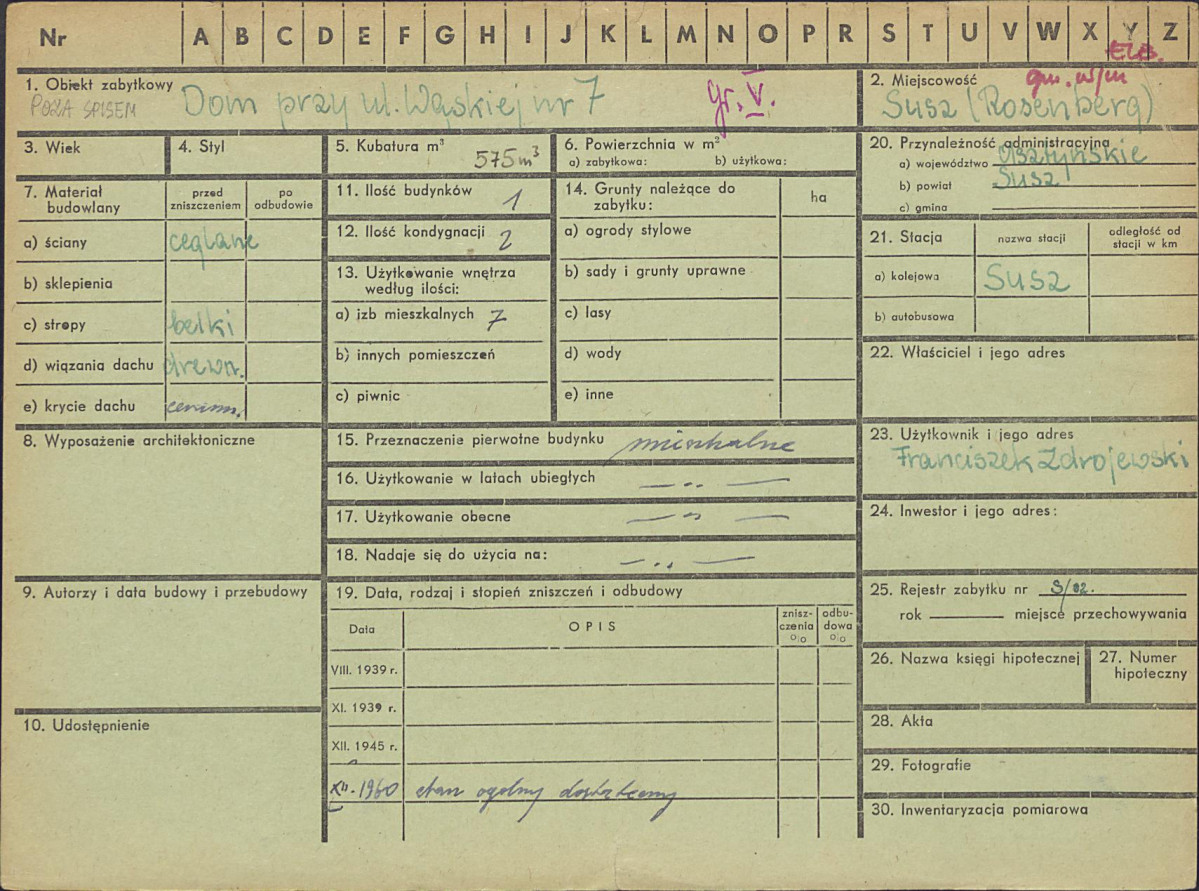 Nr A B C D E F G H I J K L M N O P R S T U V W X Y Z
ELB.
1. Obiekt zabytkowy
POZA SPISEM
Dom przy ul. Wąskiej nr 7
gr. V.
2. Miejscowość
gm. w/m
Susz (Rosenberg)
3. Wiek
4. Styl
5. Kubatura m³
575 m³
6. Powierzchnia w m²
a) zabytkowa: b) użytkowa:
20. Przynależność administracyjna
a) województwo Olsztyńskie
b) powiat Susz
c) gmina
7. Materiał budowlany
przed zniszczeniem
po odbudowie
a) ściany ceglane
b) sklepienia
c) stropy belki
d) wiązania dachu drewn.
e) krycie dachu
11. Ilość budynków 1
12. Ilość kondygnacji 2
13. Użytkowanie wnętrza
według ilości:
a) izb mieszkalnych 7
b) innych pomieszczeń
c) piwnic
14. Grunty należące do
zabytku:
ha
a) ogrody stylowe
b) sady i grunty uprawne
c) lasy
d) wody
e) inne
21. Stacja
nazwa stacji
odległość od
stacji w km
a) kolejowa Susz
b) autobusowa
22. Właściciel i jego adres
8. Wyposażenie architektoniczne
15. Przeznaczenie pierwotne budynku mieszkalne
16. Użytkowanie w latach ubiegłych — „ —
17. Użytkowanie obecne — „ —
18. Nadaje się do użycia na: — „ —
23. Użytkownik i jego adres
Franciszek Zdrojewski
24. Inwestor i jego adres:
9. Autorzy i data budowy i przebudowy
10. Udostępnienie
19. Data, rodzaj i stopień zniszczeń i odbudowy
Data
OPIS
znisz-
czenia
%
odbu-
dowa
%
VIII. 1939 r.
XI. 1939 r.
XII. 1945 r.
XII. 1960 stan ogólny dostateczny
25. Rejestr zabytku nr
rok miejsce przechowywania
26. Nazwa księgi hipotecznej
27. Numer
hipoteczny
28. Akta
29. Fotografie
30. Inwentaryzacja pomiarowa